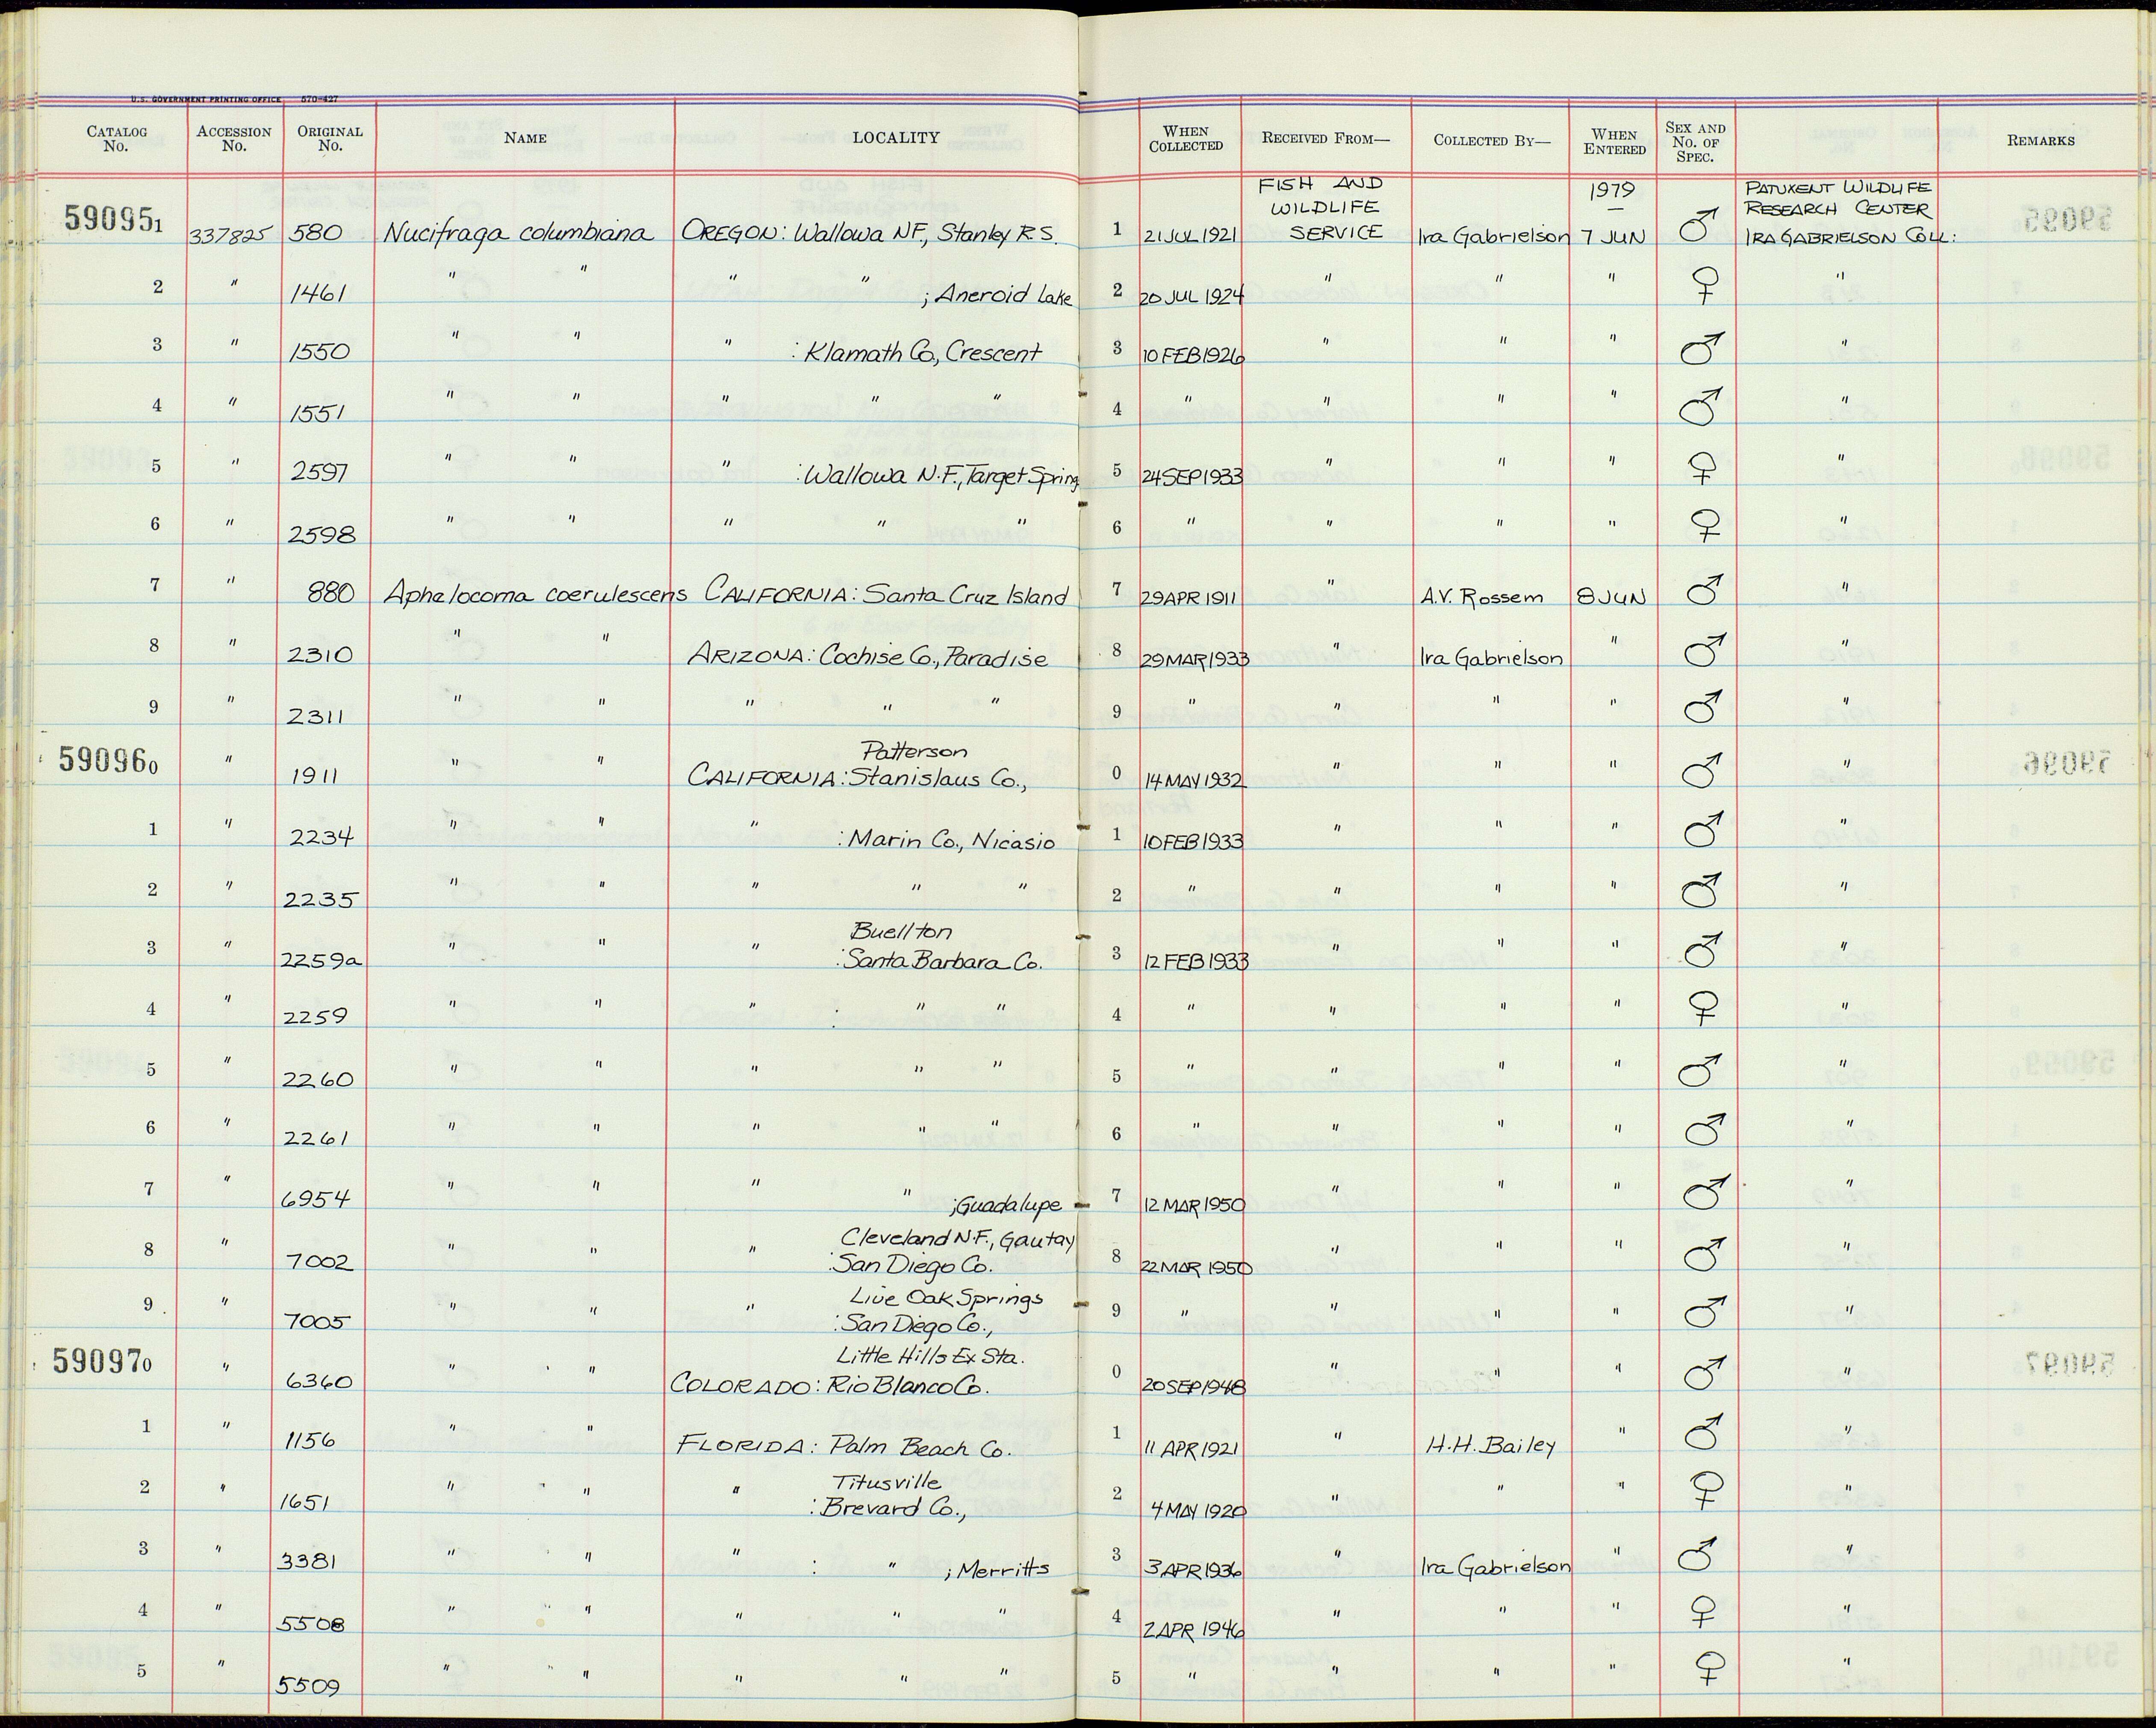 U.S. GOVERNMENT PRINTING OFFICE 670-427
CATALOG No. ACCESSION No. ORIGINAL No. NAME LOCALITY WHEN COLLECTED RECEIVED FROM— COLLECTED BY— WHEN ENTERED SEX AND No. OF SPEC. REMARKS
FISH AND WILDLIFE SERVICE 1979 PATUXENT WILDLIFE RESEARCH CENTER
590951 337825 580 Nucifraga columbiana OREGON: Wallowa NF., Stanley R.S. 1 21 JUL 1921 Ira Gabrielson 7 JUN ♂ IRA GABRIELSON COLL:
2 " 1461 " " " " ; Aneroid Lake 2 20 JUL 1924 " " " ♀ "
3 " 1550 " " " : Klamath Co., Crescent 3 10 FEB 1926 " " " ♂ "
4 " 1551 " " " " " 4 " " " " ♂ "
5 " 2597 " " " : Wallowa N.F., Target Spring 5 24 SEP 1933 " " " ♀ "
6 " 2598 " " " " " 6 " " " " ♀ "
7 " 880 Aphelocoma coerulescens CALIFORNIA: Santa Cruz Island 7 29 APR 1911 " A.V. Rossem 8 JUN ♂ "
8 " 2310 " " ARIZONA: Cochise Co., Paradise 8 29 MAR 1933 " Ira Gabrielson " ♂ "
9 " 2311 " " " " " 9 " " " " ♂ "
Patterson
590960 " 1911 " " CALIFORNIA: Stanislaus Co., 0 14 MAY 1932 " " " ♂ "
1 " 2234 " " " : Marin Co., Nicasio 1 10 FEB 1933 " " " ♂ "
2 " 2235 " " " " " 2 " " " " ♂ "
Buellton
3 " 2259a " " " : Santa Barbara Co. 3 12 FEB 1933 " " " ♂ "
4 " 2259 " " " : " " 4 " " " " ♀ "
5 " 2260 " " " " " 5 " " " " ♂ "
6 " 2261 " " " " " 6 " " " " ♂ "
7 " 6954 " " " " ; Guadalupe 7 12 MAR 1950 " " " ♂ "
Cleveland N.F., Gautay
8 " 7002 " " " : San Diego Co. 8 22 MAR 1950 " " " ♂ "
Live Oak Springs
9 " 7005 " " " : San Diego Co., 9 " " " " ♂ "
Little Hills Ex Sta.
590970 " 6360 " " COLORADO: Rio Blanco Co. 0 20 SEP 1948 " " " ♂ "
1 " 1156 " " FLORIDA: Palm Beach Co. 1 11 APR 1921 " H.H. Bailey " ♂ "
Titusville
2 " 1651 " " " : Brevard Co., 2 4 MAY 1920 " " " ♀ "
3 " 3381 " " " : " ; Merritts 3 3 APR 1936 " Ira Gabrielson " ♂ "
4 " 5508 " " " " " 4 2 APR 1946 " " " ♀ "
5 " 5509 " " " " " 5 " " " " ♀ "